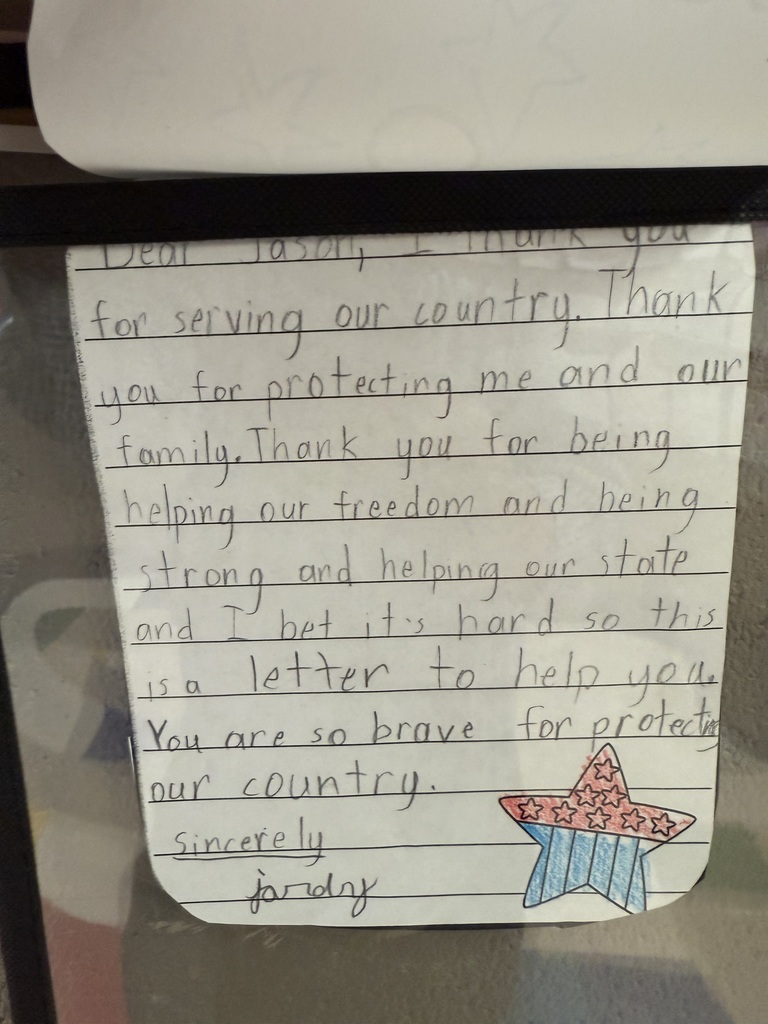 Dear Jason, I Thank you
for serving our country. Thank
you for protecting me and our
family. Thank you for being
helping our freedom and being
strong and helping our state
and I bet it's hard so this
is a letter to help you.
You are so brave for protecting
our country.
sincerely